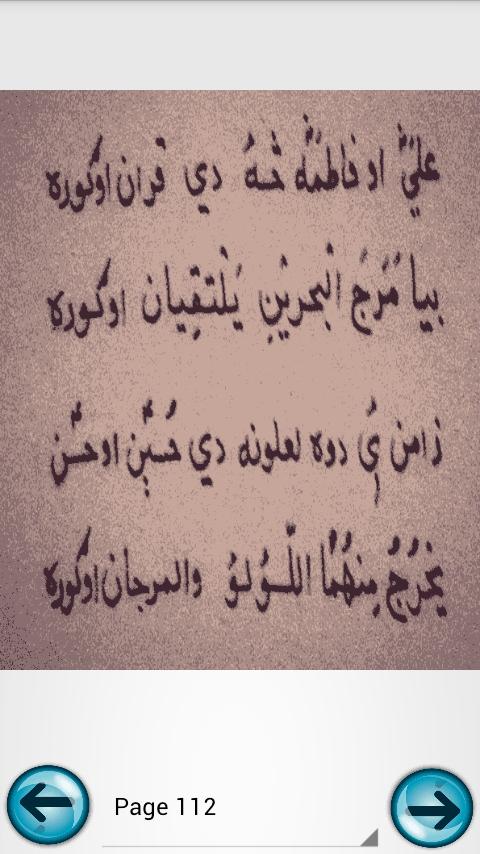 عليؑ او فاطمهؑ څه دي قران اوګوره
بيا مَرَجَ الْبحرينِ يَلْتقِيان اوګوره
زامن ئ دوه لعلونه دي حُسين او حسن
يَخْرُجُ مِنهُمَا اللّؤلؤُ والمرجان اوګوره
Page 112